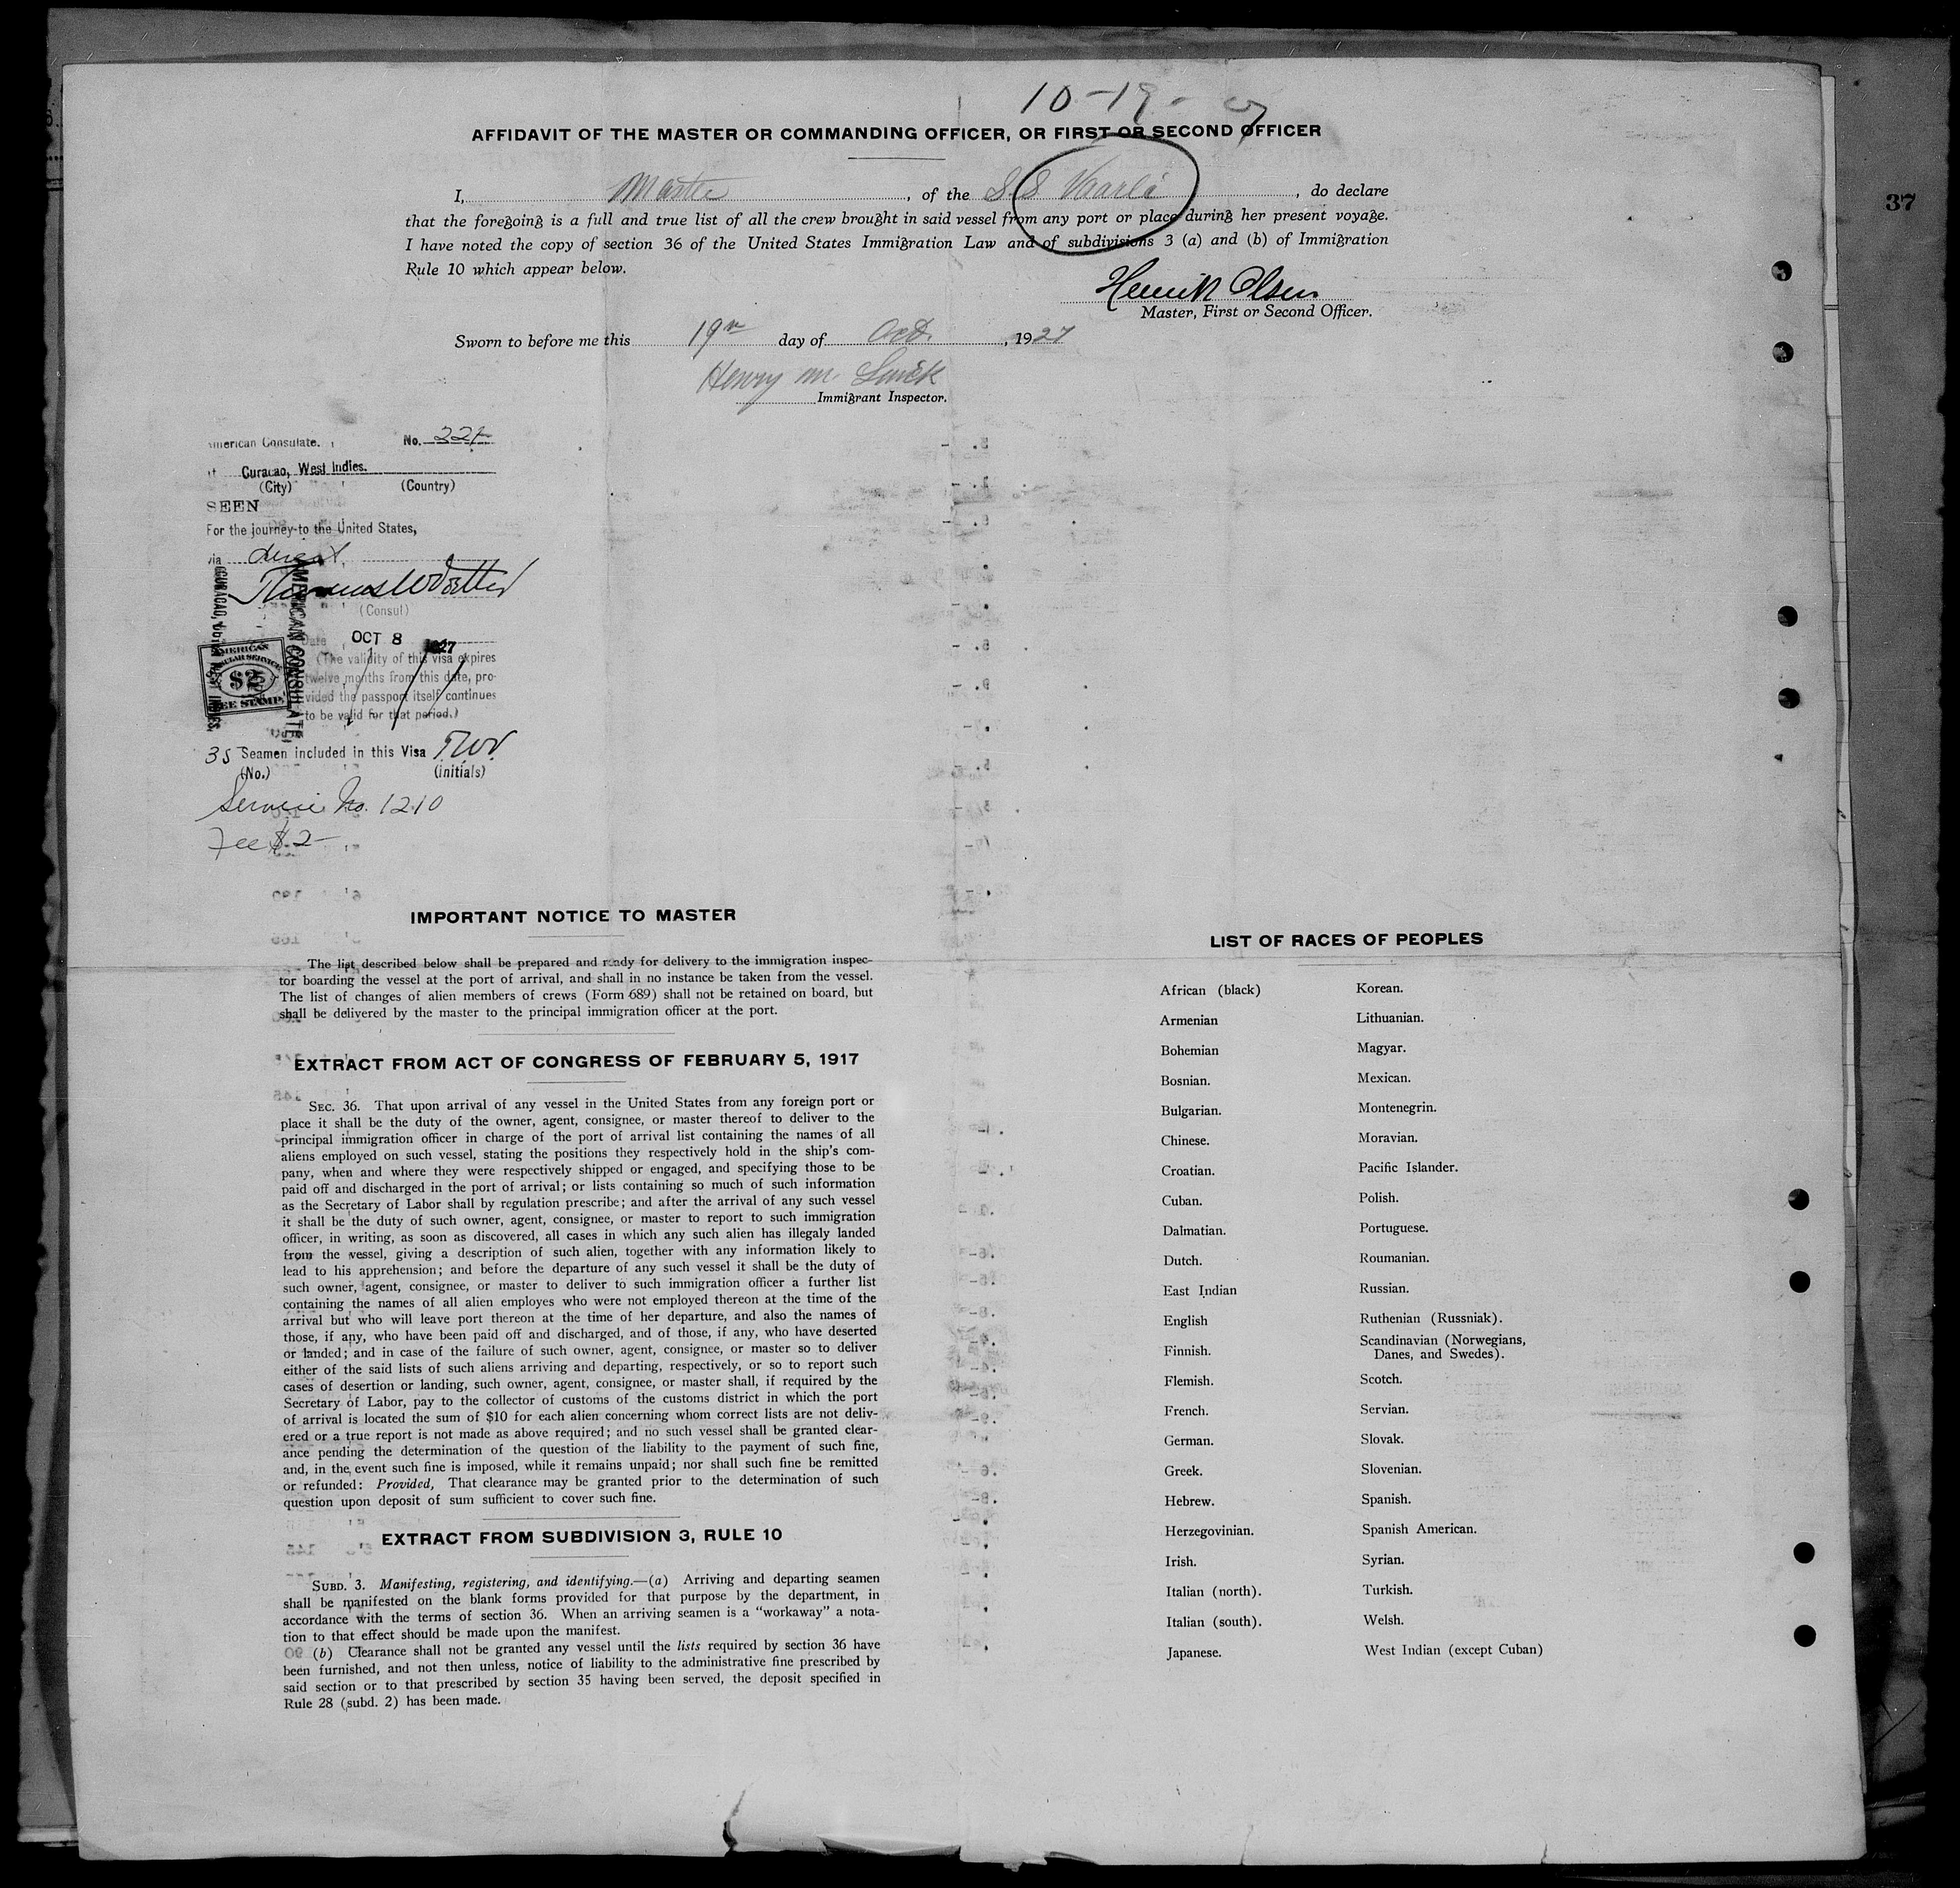 10-19-27
AFFIDAVIT OF THE MASTER OR COMMANDING OFFICER, OR FIRST OR SECOND OFFICER
I, Master, of the S.S. Vaarli, do declare
that the foregoing is a full and true list of all the crew brought in said vessel from any port or place during her present voyage.
I have noted the copy of section 36 of the United States Immigration Law and of subdivisions 3 (a) and (b) of Immigration
Rule 10 which appear below.
Henrik Olsen
Master, First or Second Officer.
Sworn to before me this 19th day of Oct., 1927
Henry M
Immigrant Inspector.
37
American Consulate. No. 221
at Curacao, West Indies.
(City) (Country)
SEEN
For the journey to the United States,
via direct.
(Consul)
Date OCT 8 1927
(The validity of this visa expires
twelve months from this date, pro-
vided the passport itself continues
to be valid for that period.)
AMERICAN CONSULATE
CURACAO, DUTCH WEST INDIES.
AMERICAN
CONSULAR SERVICE
$2
FEE STAMP
35 Seamen included in this Visa TWV.
(No.) (initials)
Service No. 1210
Fee $2-
IMPORTANT NOTICE TO MASTER
The list described below shall be prepared and ready for delivery to the immigration inspec-
tor boarding the vessel at the port of arrival, and shall in no instance be taken from the vessel.
The list of changes of alien members of crews (Form 689) shall not be retained on board, but
shall be delivered by the master to the principal immigration officer at the port.
EXTRACT FROM ACT OF CONGRESS OF FEBRUARY 5, 1917
SEC. 36. That upon arrival of any vessel in the United States from any foreign port or
place it shall be the duty of the owner, agent, consignee, or master thereof to deliver to the
principal immigration officer in charge of the port of arrival list containing the names of all
aliens employed on such vessel, stating the positions they respectively hold in the ship's com-
pany, when and where they were respectively shipped or engaged, and specifying those to be
paid off and discharged in the port of arrival; or lists containing so much of such information
as the Secretary of Labor shall by regulation prescribe; and after the arrival of any such vessel
it shall be the duty of such owner, agent, consignee, or master to report to such immigration
officer, in writing, as soon as discovered, all cases in which any such alien has illegaly landed
from the vessel, giving a description of such alien, together with any information likely to
lead to his apprehension; and before the departure of any such vessel it shall be the duty of
such owner, agent, consignee, or master to deliver to such immigration officer a further list
containing the names of all alien employes who were not employed thereon at the time of the
arrival but who will leave port thereon at the time of her departure, and also the names of
those, if any, who have been paid off and discharged, and of those, if any, who have deserted
or landed; and in case of the failure of such owner, agent, consignee, or master so to deliver
either of the said lists of such aliens arriving and departing, respectively, or so to report such
cases of desertion or landing, such owner, agent, consignee, or master shall, if required by the
Secretary of Labor, pay to the collector of customs of the customs district in which the port
of arrival is located the sum of $10 for each alien concerning whom correct lists are not deliv-
ered or a true report is not made as above required; and no such vessel shall be granted clear-
ance pending the determination of the question of the liability to the payment of such fine,
and, in the event such fine is imposed, while it remains unpaid; nor shall such fine be remitted
or refunded: Provided, That clearance may be granted prior to the determination of such
question upon deposit of sum sufficient to cover such fine.
EXTRACT FROM SUBDIVISION 3, RULE 10
SUBD. 3. Manifesting, registering, and identifying.—(a) Arriving and departing seamen
shall be manifested on the blank forms provided for that purpose by the department, in
accordance with the terms of section 36. When an arriving seamen is a "workaway" a nota-
tion to that effect should be made upon the manifest.
(b) Clearance shall not be granted any vessel until the lists required by section 36 have
been furnished, and not then unless, notice of liability to the administrative fine prescribed by
said section or to that prescribed by section 35 having been served, the deposit specified in
Rule 28 (subd. 2) has been made.
LIST OF RACES OF PEOPLES
African (black) Korean.
Armenian Lithuanian.
Bohemian Magyar.
Bosnian. Mexican.
Bulgarian. Montenegrin.
Chinese. Moravian.
Croatian. Pacific Islander.
Cuban. Polish.
Dalmatian. Portuguese.
Dutch. Roumanian.
East Indian Russian.
English Ruthenian (Russniak).
Finnish. Scandinavian (Norwegians,
Danes, and Swedes).
Flemish. Scotch.
French. Servian.
German. Slovak.
Greek. Slovenian.
Hebrew. Spanish.
Herzegovinian. Spanish American.
Irish. Syrian.
Italian (north). Turkish.
Italian (south). Welsh.
Japanese. West Indian (except Cuban)